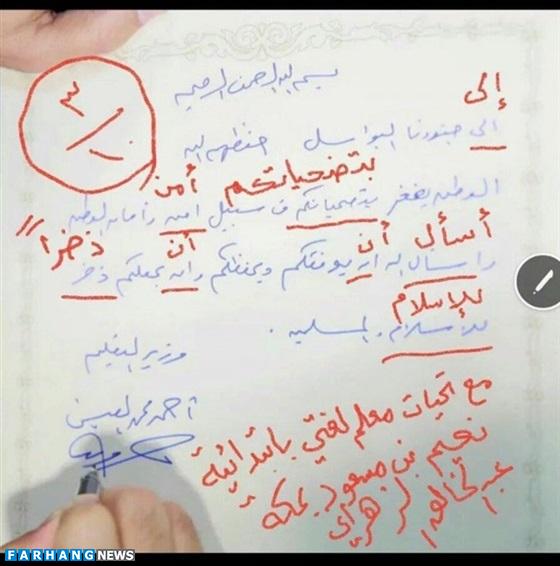 بسم الله الرحمن الرحيم
٣/١٠
إلى
الى جنودنا البواسل حفظهم الله
بتضحياتكم أمن
الوطن يفخر بتضحياتكم في سبيل امن وامان الوطن
أسأل أن أن ذخراً
واسال الله ان يوفقكم ويحفظكم وان يجعلكم ذخر
للإسلام
للاسلام والمسلمين.
وزير التعليم
أحمد محمد العيسى
مع تحيات معلم لغتي بابتدائية
نعيم بن مسعود بمكة
عبدالخالق الزهراني
FARHANGNEWS